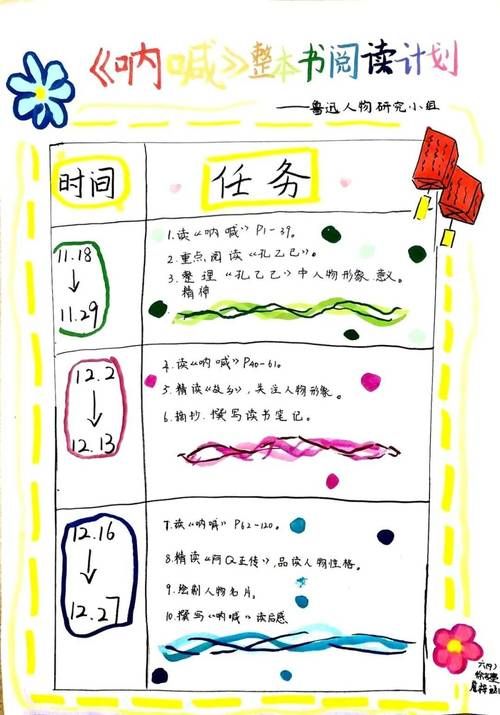 《呐喊》整本书阅读计划
——鲁迅人物研究小组
时间
任务
11.18
↓
11.29
1.读《呐喊》P1-39。
2.重点阅读《孔乙己》。
3.整理《孔乙己》中人物形象.意义。
精神
12.2
↓
12.13
4.读《呐喊》P40-61。
5.精读《故乡》,关注人物形象。
6.摘抄.撰写读书笔记。
12.16
↓
12.27
7.读《呐喊》P62-120。
8.精读《阿Q正传》,品读人物性格。
9.绘制人物名片。
10.撰写《呐喊》读后感
六(4)